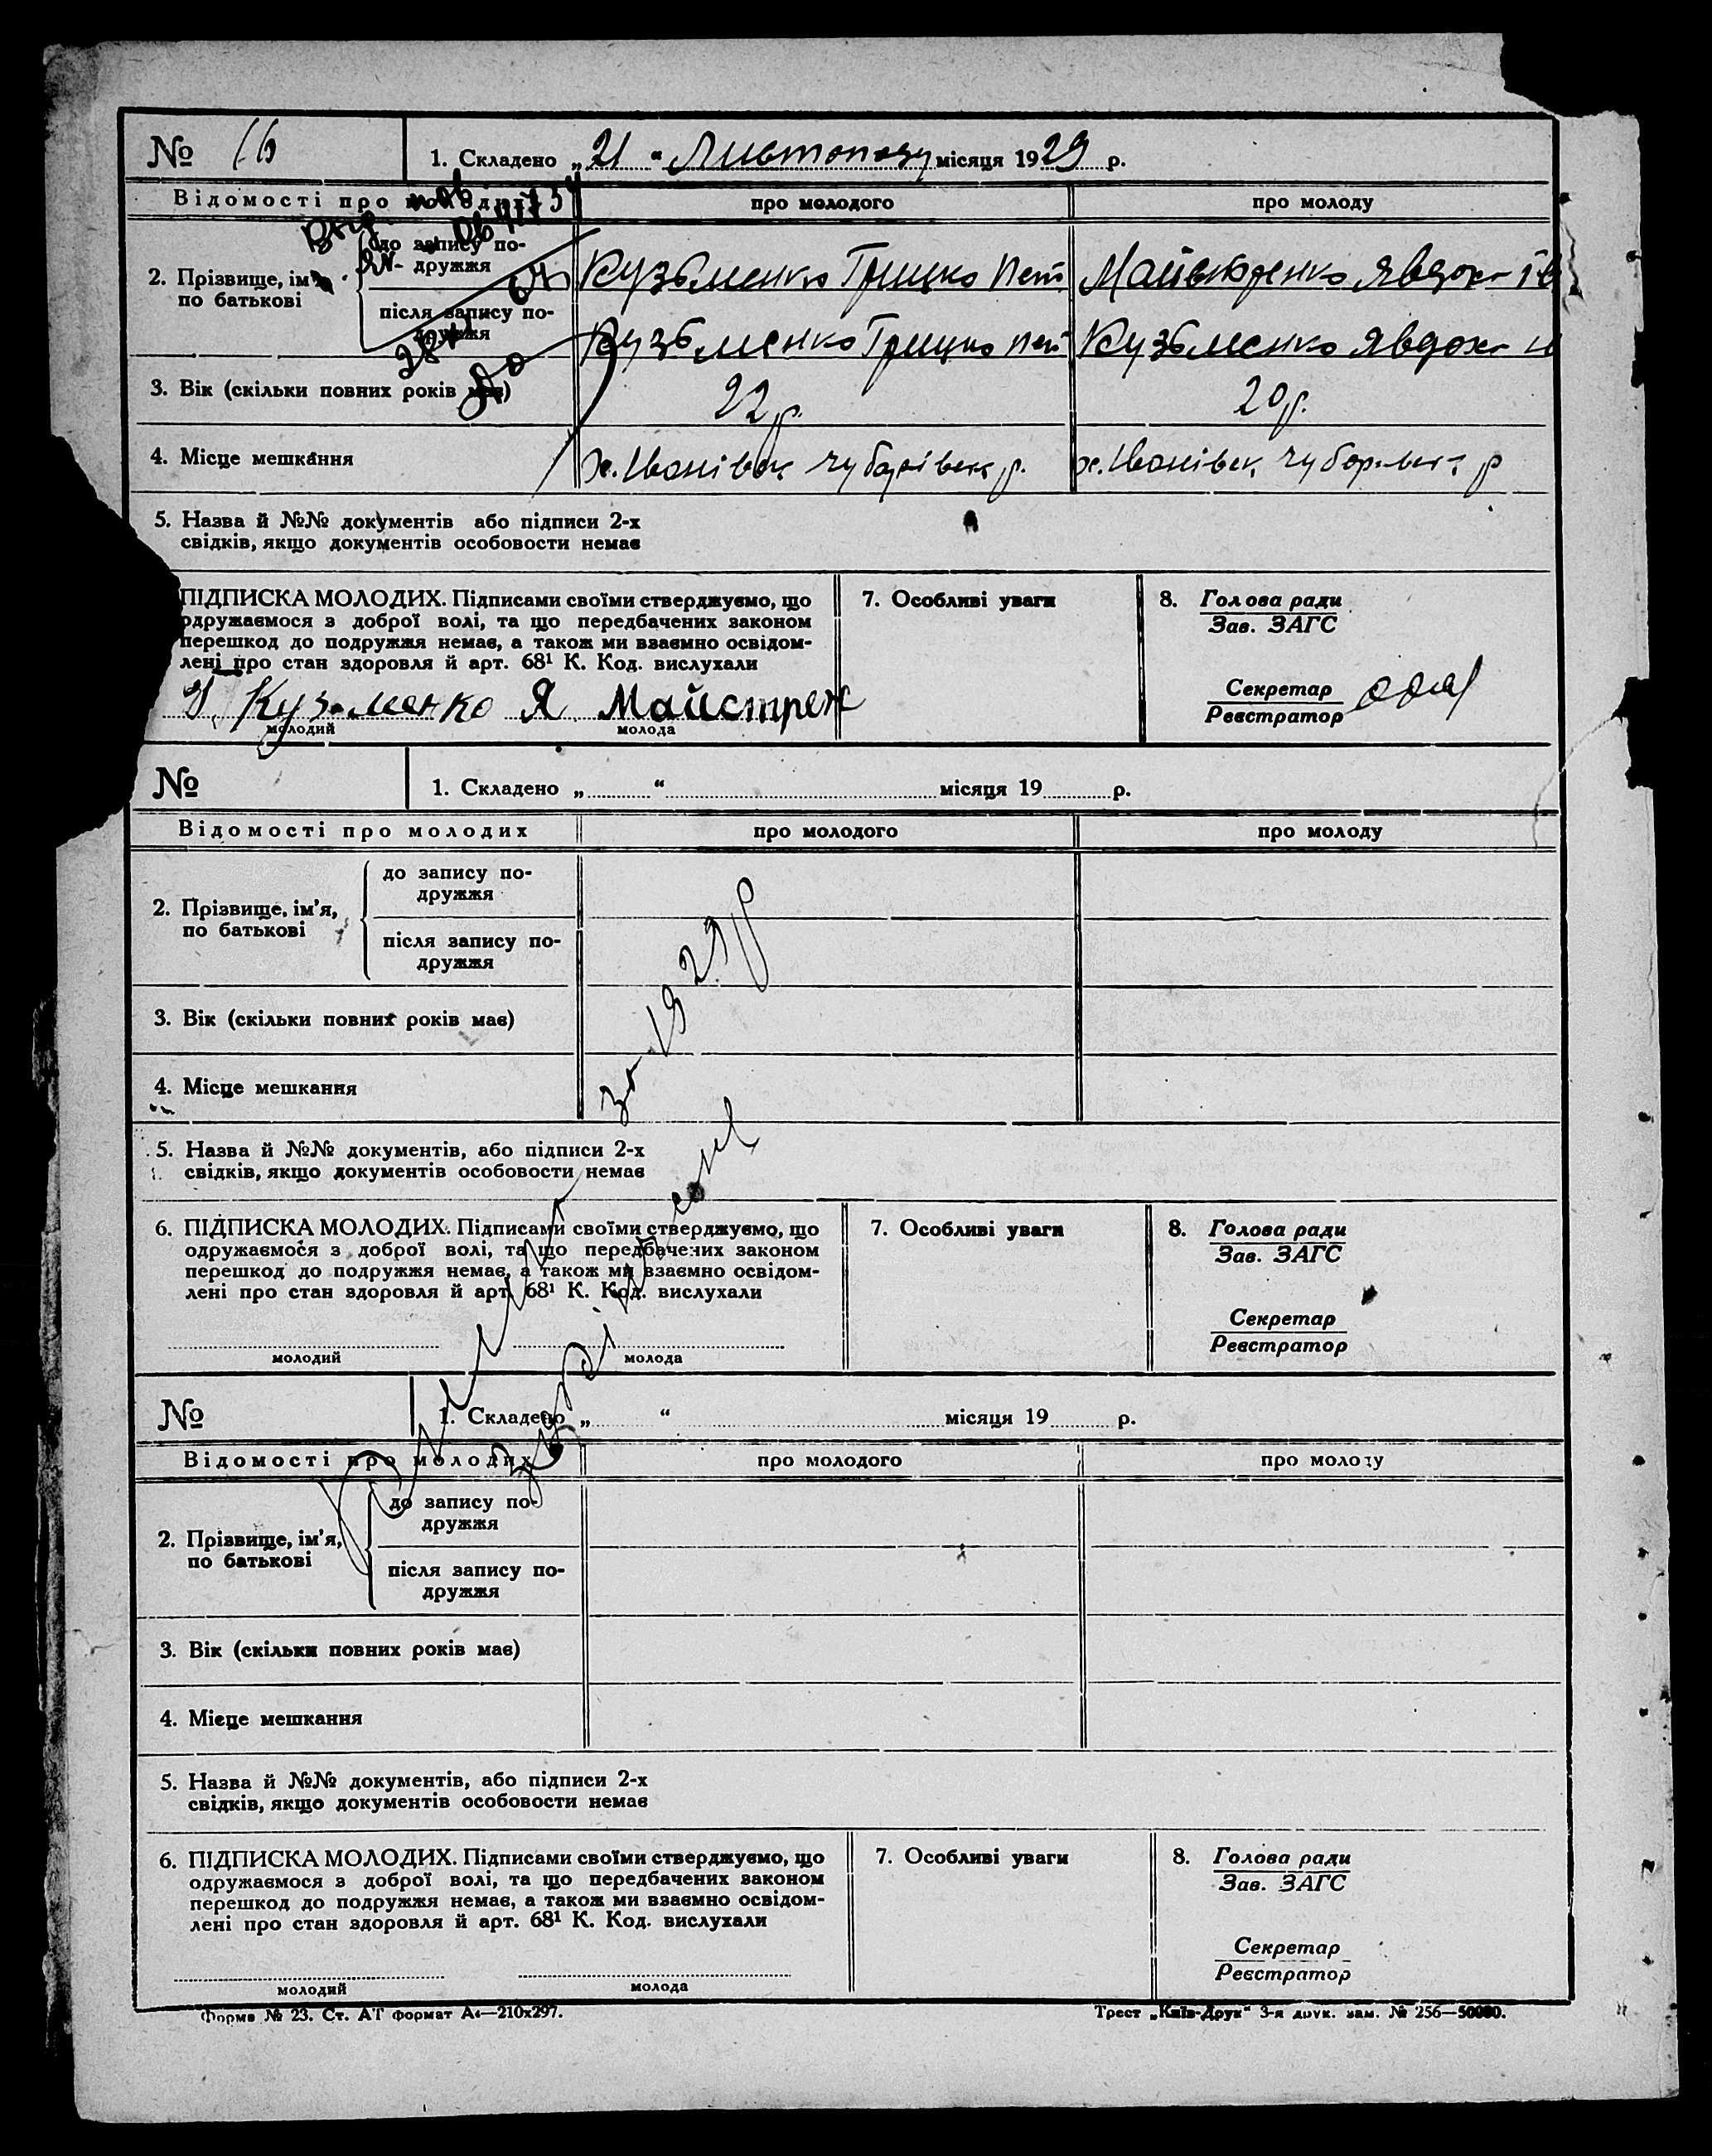 № 16
1. Складено „21“ Листопаду місяця 1929 р.
Відомості про молодих про молодого про молоду
2. Прізвище, ім'я, по батькові
до запису по-
дружжя
Кузьменко Грицко Пет
Явдох
після запису по-
дружжя
Кузьменко Грицко Пет
Кузьменко Явдох
3. Вік (скільки повних років має) 22 р. 20 р.
4. Місце мешкання х. Іванівск р. х. Іванівск р
5. Назва й №№ документів або підписи 2-х
свідків, якщо документів особовости немає
ПІДПИСКА МОЛОДИХ. Підписами своїми стверджуємо, що
одружаємося з доброї волі, та що передбачених законом
перешкод до подружжя немає, а також ми взаємно освідом-
лені про стан здоровля й арт. 68¹ К. Код. вислухали
Кузьменко Я Майстрен
молодий молода
7. Особливі уваги
8. Голова ради
Зав. ЗАГС
Секретар
Реєстратор
№
1. Складено „ “ місяця 19 р.
Відомості про молодих про молодого про молоду
2. Прізвище, ім'я,
по батькові
до запису по-
дружжя
після запису по-
дружжя
3. Вік (скільки повних років має)
4. Місце мешкання
За 1929 р
5. Назва й №№ документів, або підписи 2-х
свідків, якщо документів особовости немає
6. ПІДПИСКА МОЛОДИХ. Підписами своїми стверджуємо, що
одружаємося з доброї волі, та що передбачених законом
перешкод до подружжя немає, а також ми взаємно освідом-
лені про стан здоровля й арт. 68¹ К. Код. вислухали
молодий молода
7. Особливі уваги
8. Голова ради
Зав. ЗАГС
Секретар
Реєстратор
№
1. Складено „ “ місяця 19 р.
Відомості про молодих про молодого про молоду
2. Прізвище, ім'я,
по батькові
до запису по-
дружжя
після запису по-
дружжя
3. Вік (скільки повних років має)
4. Місце мешкання
5. Назва й №№ документів, або підписи 2-х
свідків, якщо документів особовости немає
6. ПІДПИСКА МОЛОДИХ. Підписами своїми стверджуємо, що
одружаємося з доброї волі, та що передбачених законом
перешкод до подружжя немає, а також ми взаємно освідом-
лені про стан здоровля й арт. 68¹ К. Код. вислухали
молодий молода
7. Особливі уваги
8. Голова ради
Зав. ЗАГС
Секретар
Реєстратор
Форма № 23. Ст. АТ формат А₄—210х297.
Трест „Київ-Друк“ 3-я друк. зам. № 256—50000.